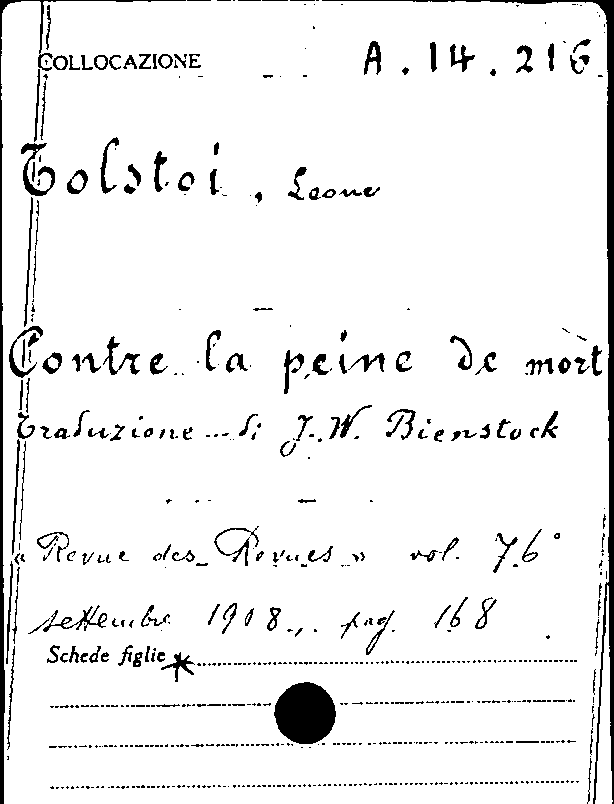 COLLOCAZIONE A. 14. 216
Tolstoi, Leone
Contre la peine de mort
Traduzione di J. W. Bienstock
« Revue des Revues » vol. 76°
settembre 1908., pag. 168
Schede figlie *